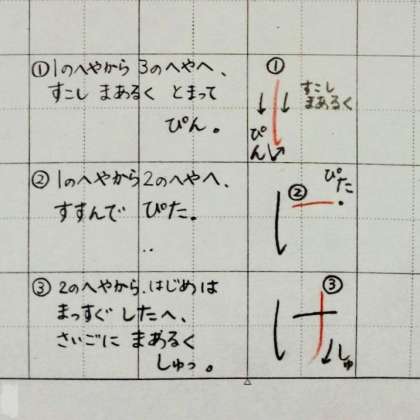 ①1のへやから 3のへやへ、
すこし まあるく とまって
ぴん。
①
すこし
まあるく
ぴん
②1のへやから2のへやへ、
すすんで ぴた。
②
ぴた
③2のへやから、はじめは
まっすぐ したへ、
さいごに まあるく
しゅっ。
③
しゅ